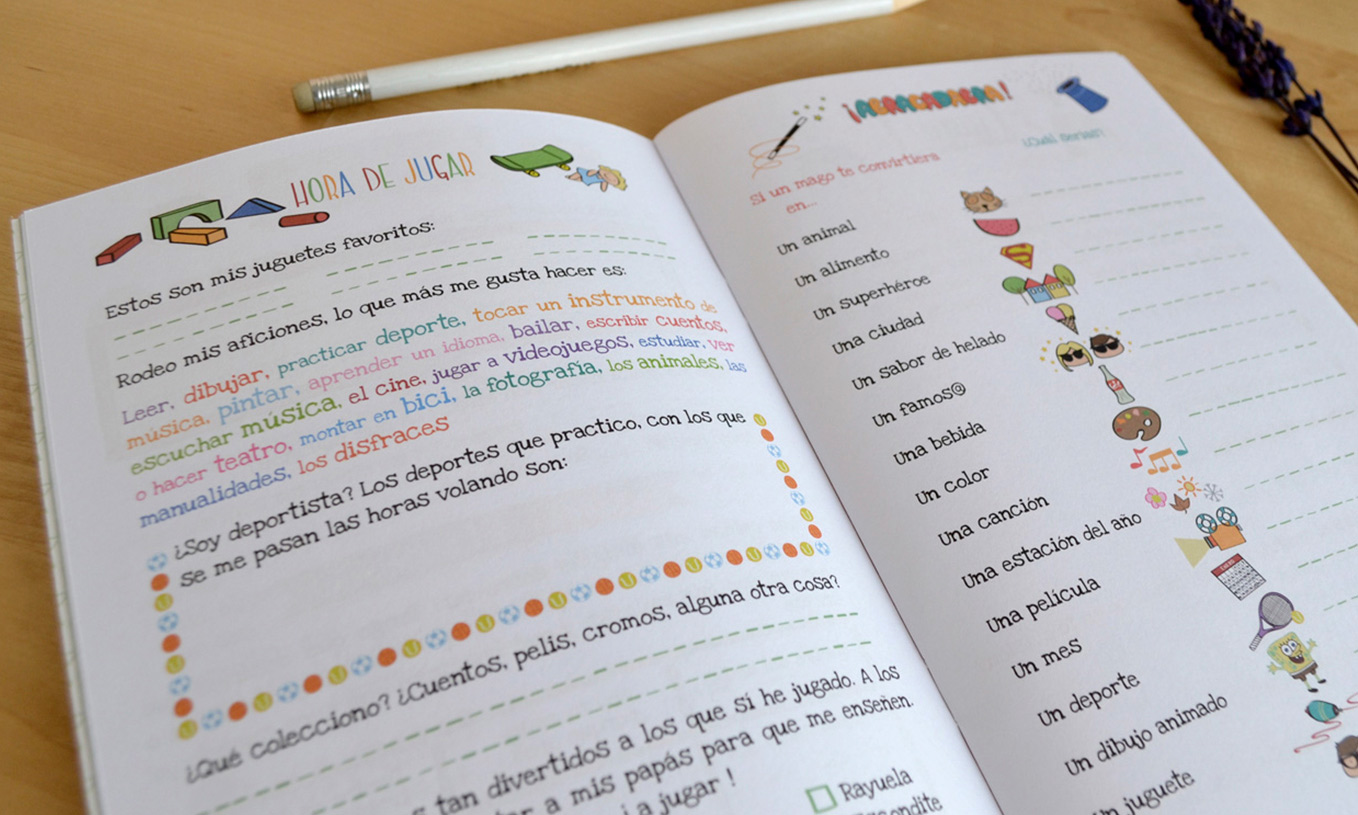 HORA DE JUGAR
Estos son mis juguetes favoritos:
Rodeo mis aficiones, lo que más me gusta hacer es:
Leer, dibujar, practicar deporte, tocar un instrumento de
música, pintar, aprender un idioma, bailar, escribir cuentos,
escuchar música, el cine, jugar a videojuegos, estudiar, ver
o hacer teatro, montar en bici, la fotografía, los animales, las
manualidades, los disfraces
¿Soy deportista? Los deportes que practico, con los que
se me pasan las horas volando son:
¿Qué colecciono? ¿Cuentos, pelis, cromos, alguna otra cosa?
tan divertidos a los que sí he jugado. A los
a mis papás para que me enseñen.
a jugar !
Rayuela
¡ABRACADABRA!
Si un mago te convirtiera
en...
¿Cuál serías?
Un animal
Un alimento
Un superhéroe
Una ciudad
Un sabor de helado
Un famos@
Una bebida
Un color
Una canción
Una estación del año
Una película
Un mes
Un deporte
Un dibujo animado
Un juguete